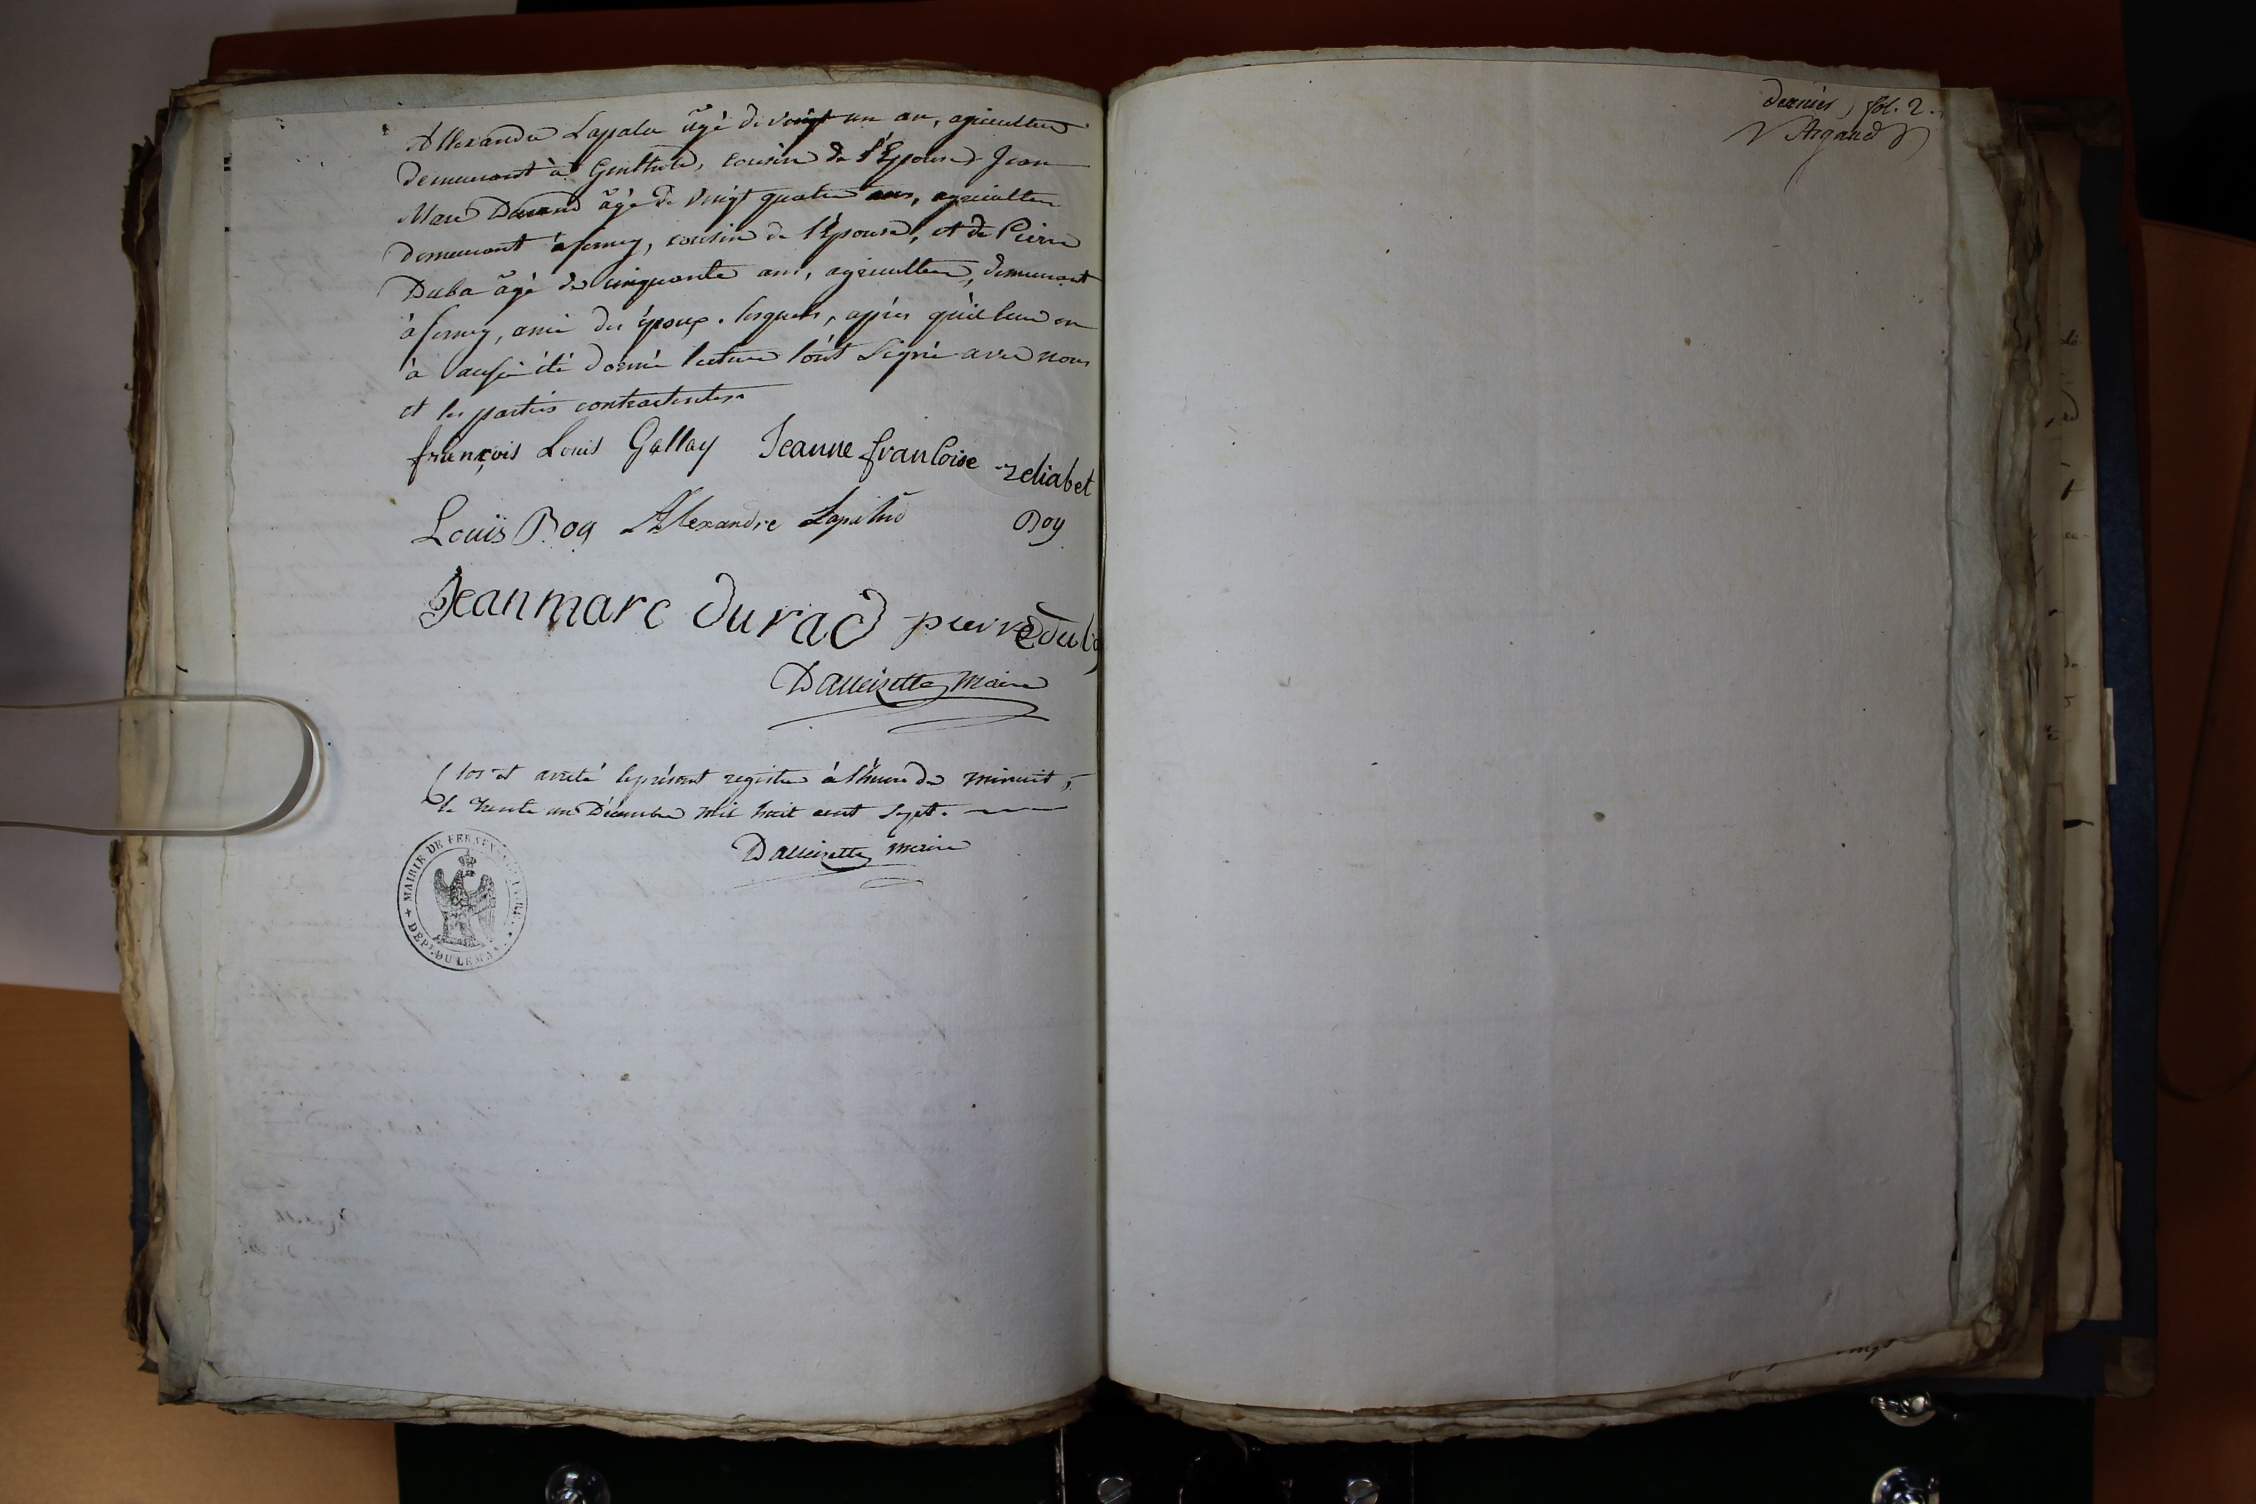 Allexandre Lapalu âgé de vingt un an, agriculteur
demeurant à Genthod, cousin de l'Epouse, Jean
Marc Durand âgé de vingt quatre ans, agriculteur
demeurant à ferney, cousin de l'Epouse, et de Pierre
Duba âgé de cinquante ans, agriculteur, demeurant
à ferney, ami des époux. lesquels, après qu'il leur en
à aussi été donné lecture l'ont signé avec nous
et les parties contractantes.
françois Louis Gallay Jeanne francoise zeliabet
Louïs Roy Alexandre Roy
Jean marc durad pierre duba
maire
Clos et arreté le présent registre à l'heure de minuit,
le trente un Décembre mil huit cent sept.
maire
MAIRIE DE FERNEY
DEPT. DU LEMAN
dernier fol. 2.
Argand